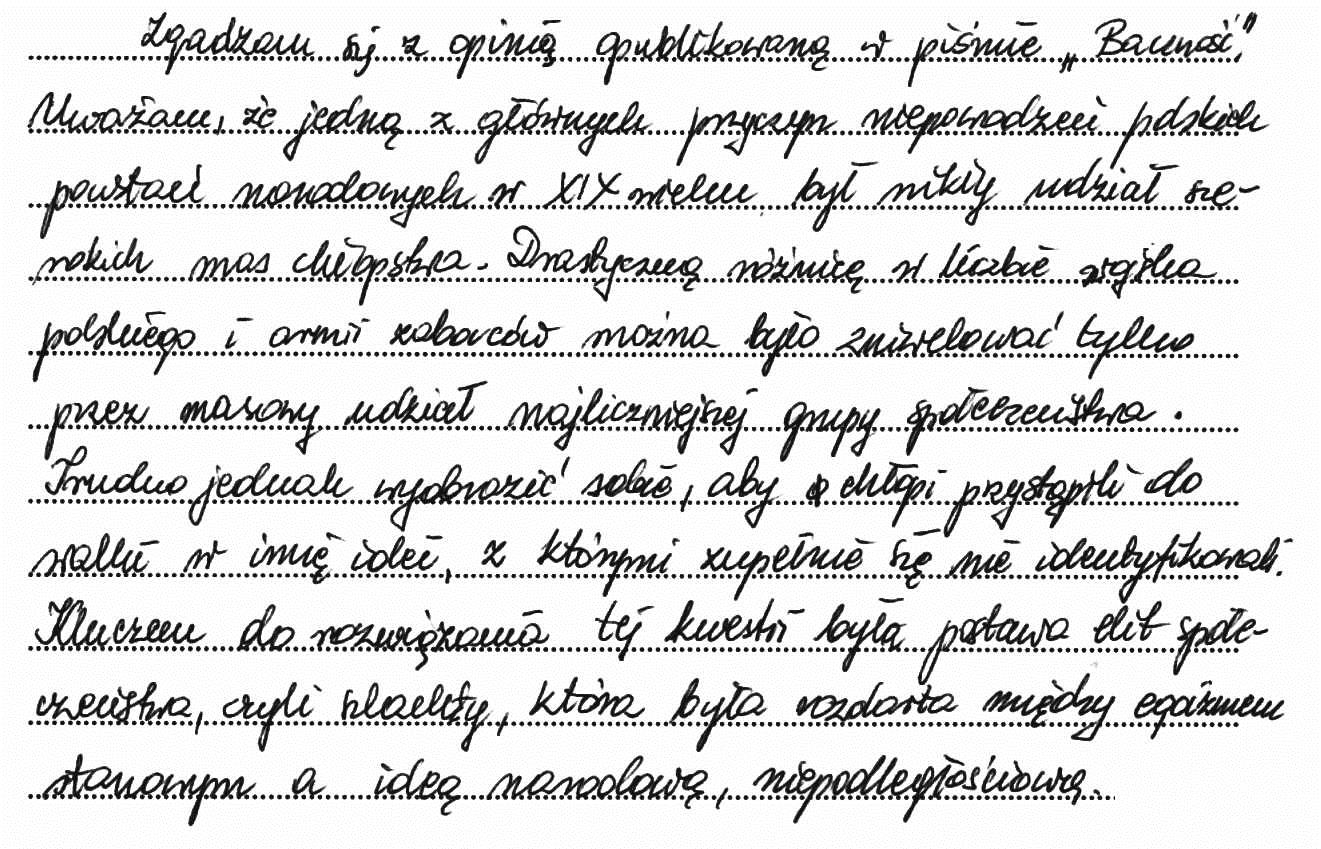 Zgadzam się z opinią opublikowaną w piśmie „Baczność".
Uważam, że jedną z głównych przyczyn niepowodzeń polskich
powstań narodowych w XIX wieku był nikły udział sze-
rokich mas chłopstwa. Drastyczną różnicę w liczbie wojska
polskiego i armii zaborców można było zniwelować tylko
przez masowy udział najliczniejszej grupy społeczeństwa.
Trudno jednak wyobrazić sobie, aby chłopi przystąpili do
walki w imię idei, z którymi zupełnie się nie identyfikowali.
Kluczem do rozwiązania tej kwestii była postawa elit społe-
czeństwa, czyli szlachty, która była rozdarta między egoizmem
stanowym a ideą narodową, niepodległościową.